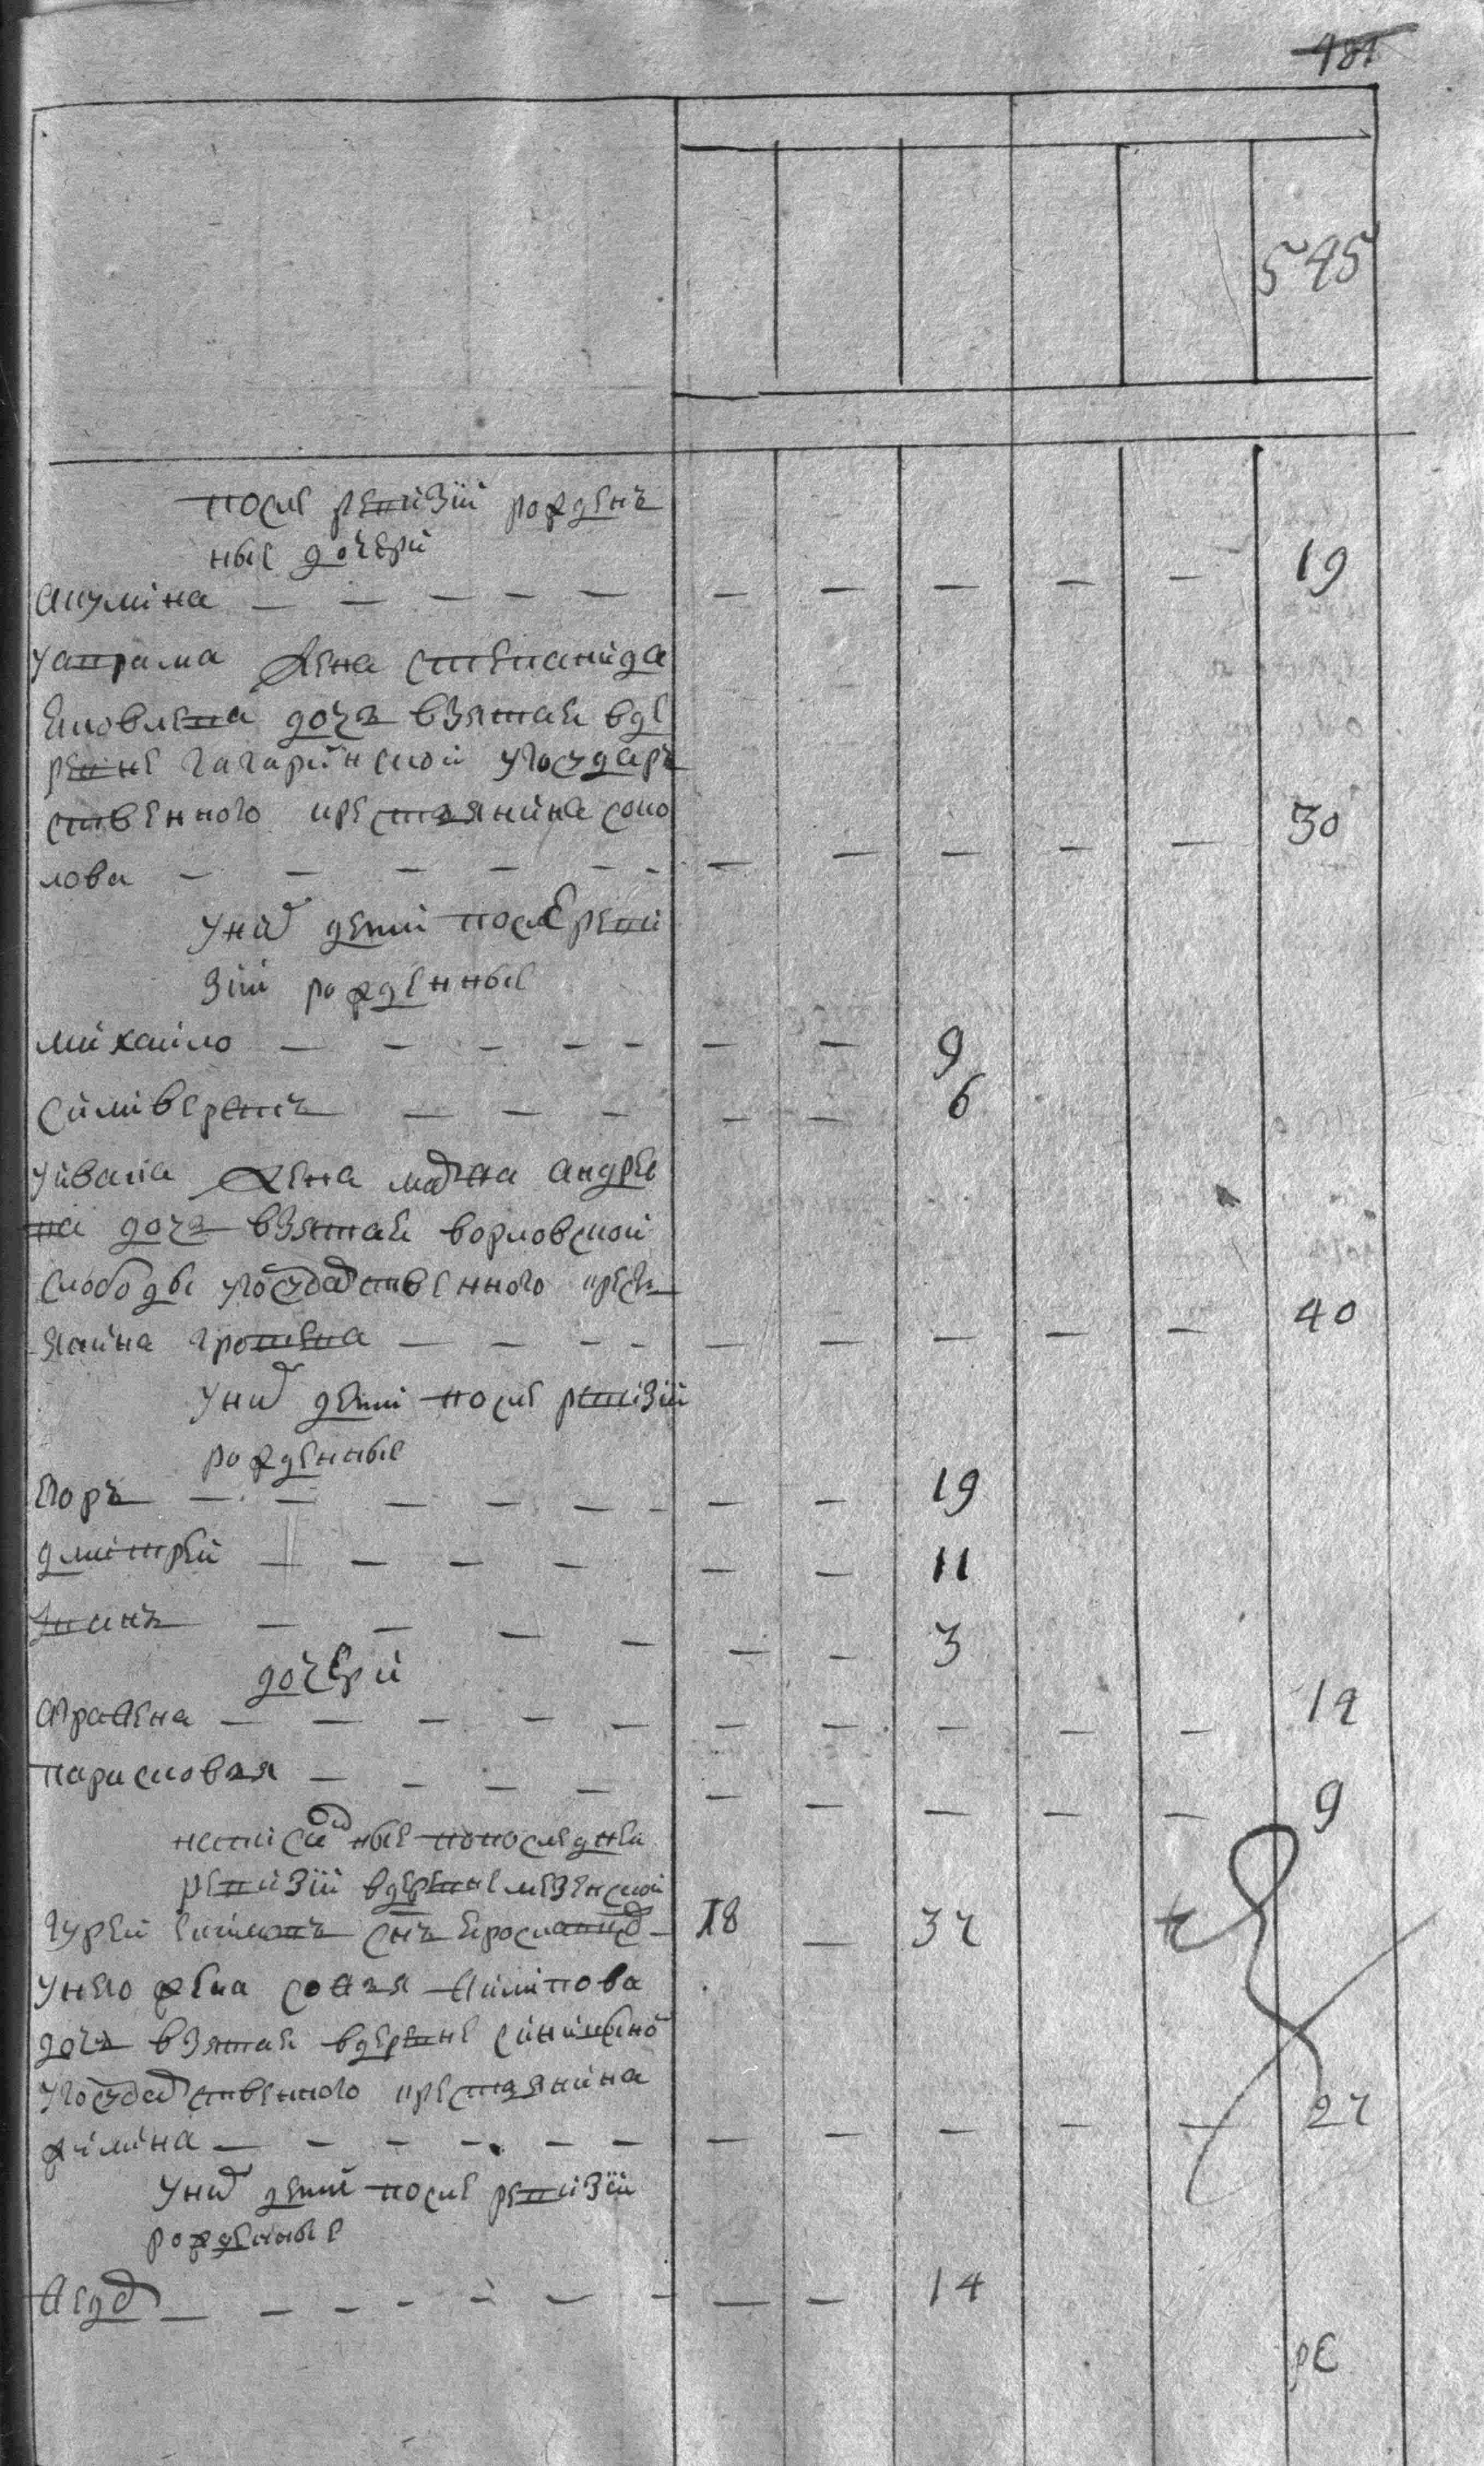 481
545
после ревизiи рожденъ
ные дочери
акулина — — — — — — — — — — 19
уавраама жена степанида
яковлева дочь взятая вде
ревне гагаринской угосударъ
ственного крестьянина соко
лова — — — — — — — — — — 30
унихъ дети послеревi
зiи рожденные
михайло — — — — — — — 9
силивертъ — — — — — 6
уивана жена марфа андрее
ва дочь взятая ворловской
слободы угосударственного кресь
янина грошева — — — — — — — — — 40
унихъ дети после ревизiи
рожденные
Егоръ — — — — — — — — 19
дмитрей — — — — — — 11
Iванъ — — — — — — 3
дочери
аграфена — — — — — — — — — — 12
парасковья — — — — — — — — — 9
написанные попоследней
ревизiи вдеревне мезенской
гурей сынъ 18 — 32
унего жена софья филипова
дочь взятая вдеревне
угосударственного крестьянина
— — — — — — — — — — — 27
унихъ дети после ревизiи
рожденные
федоръ — — — — — — — — 14